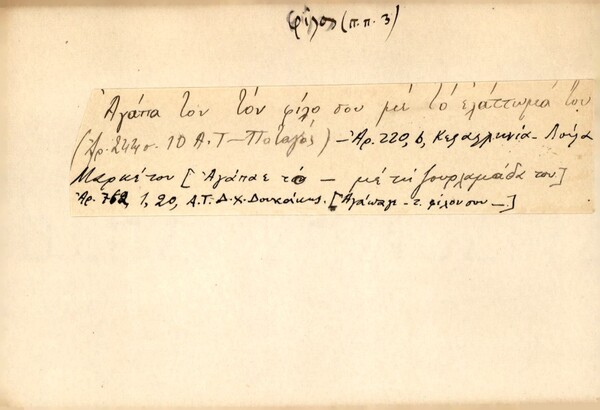 φίλος (π.π. 3)
Ἀγάπα τον τόν φίλο σου μέ τό ἐλάττωμά του
(Ἀρ. 244 σ. 10 Α.Τ - Παταγός) - Ἀρ. 220, 6, Κεφαλληνία - Λουίζα
Μαρκέτου [Ἀγάπαε τό — μέ τή ζουρλαμάδα του]
Ἀρ. 762, 1, 20, Α.Τ. Δ. Χ. Δουκάκης. [Ἀγάπαγε - τ. φίλον σου —]